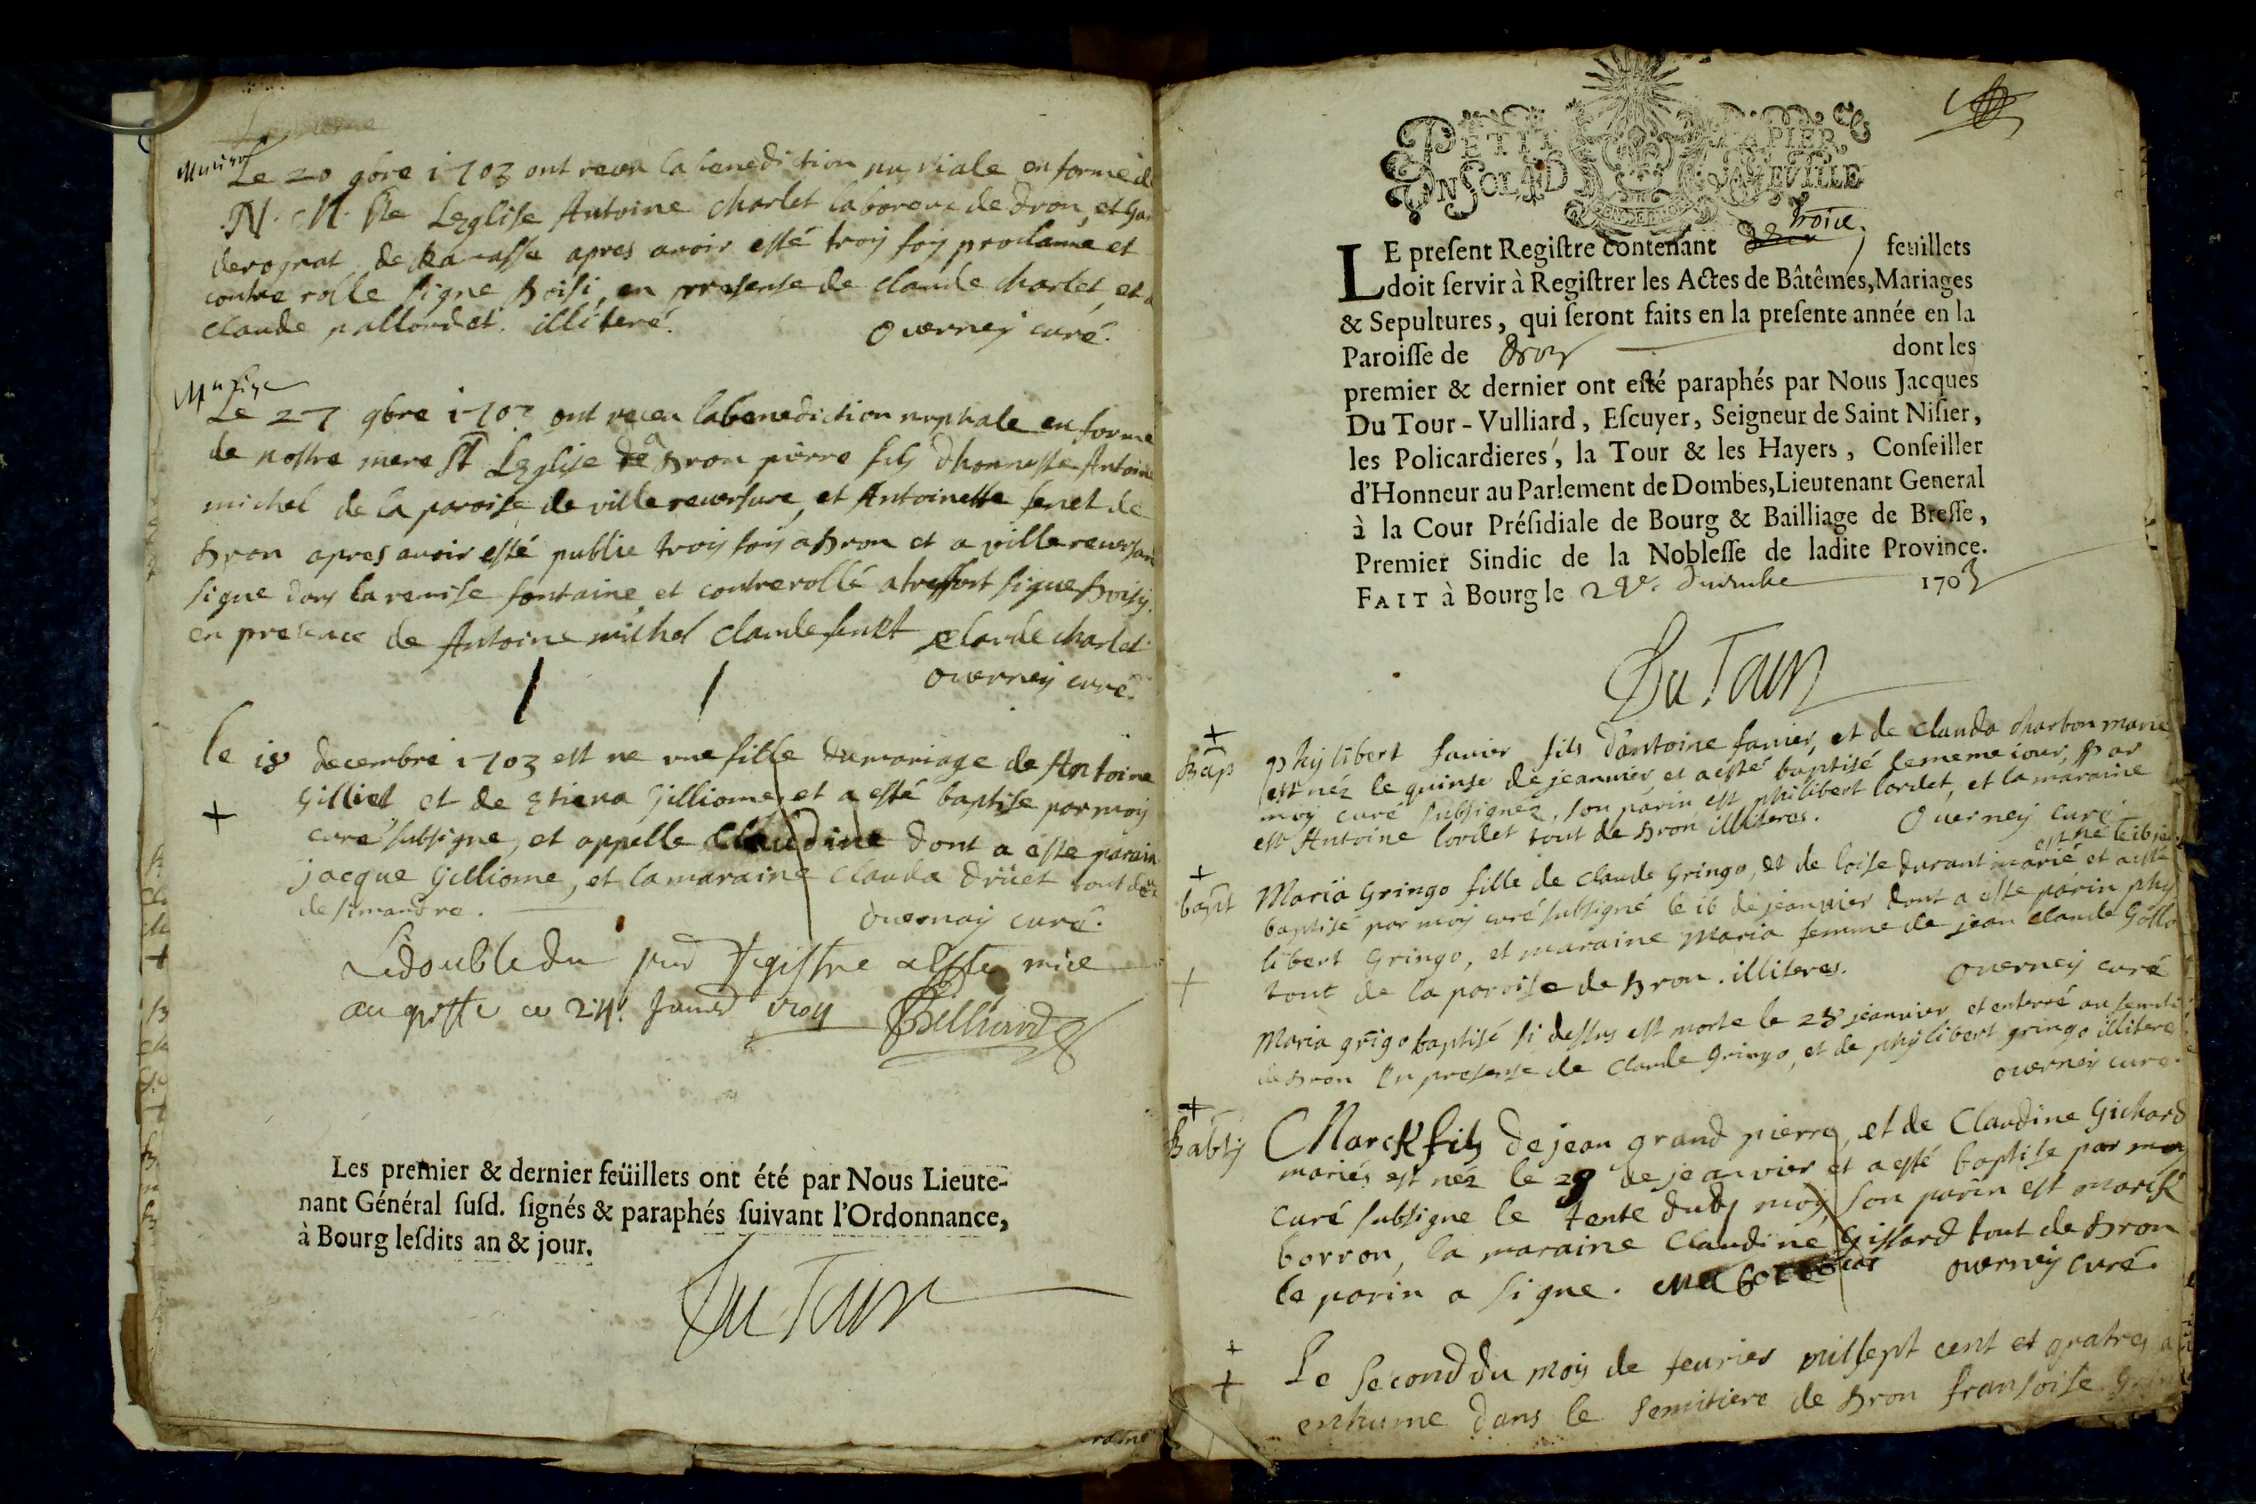 Le 20 9bre 1703 ont receu la benediction nuptiale en forme de
N. M. Ste Leglise Antoine Charlet laboreur de dron, et
de Ramasse apres avoir esté troy foy proclamé et
contre rolle signe Boisi, en presense de Claude Charlet, et
Claude pallordet. illiteré. Overney curé.
Le 27 9bre 1703 ont receu la benediction nuptiale en forme
de nostre mere St Leglise de dron pierre fils dhonneste Antoine
michel de la paroise de ville reversure, et Antoinette fenet de
dron apres avoir esté publie troy foy a dron et a ville reversure
signe dans la remise fontaine et contrerollé a treffort signe Boisy.
en presence de Antoine michel Claude fenet Claude Charlet
Overney curé.
le 18 decembre 1703 est ne une fille du mariage de Antoine
Gilliet et de Gilliome, et a esté baptise par moy
curé subsigne, et appelle Claudine dont a este parain
jacque Gilliome, et la maraine Clauda drüet tout deux
de simandre. Overney curé.
Le double du pnt Registre a esté mice
au greffe ce 24e Janvr 1704 Billiard
Les premier & dernier feüillets ont été par Nous Lieute-
nant Général susd. signés & paraphés suivant l'Ordonnance,
à Bourg lesdits an & jour.
Du Tour
PETIT PAPIER
UN SOL LA FEUILLE
LE present Registre contenant troise feuillets
doit servir à Registrer les Actes de Bâtêmes, Mariages
& Sepultures, qui seront faits en la presente année en la
Paroisse de dron dont les
premier & dernier ont esté paraphés par Nous Jacques
Du Tour-Vulliard, Escuyer, Seigneur de Saint Nisier,
les Policardieres, la Tour & les Hayers, Conseiller
d'Honneur au Parlement de Dombes, Lieutenant General
à la Cour Présidiale de Bourg & Bailliage de Bresse,
Premier Sindic de la Noblesse de ladite Province.
FAIT à Bourg le 1703
Du Tour
Bap phylibert favier fils d'antoine favier, et de clauda charbon marié
est nez le quinse de jeanvier et a esté baptisé le meme iour, par
moy curé subsignez, son parin est philibert lordet, et la maraine
est Antoine lordet tout de dron illiteres. Overney curé
est né le 16
bapt Maria Gringo fille de claude Gringo, et de loise durant marié et a esté
baptisé par moy curé subsigné le 16 de jeanvier dont a este parin phy
libert Gringo, et maraine Maria femme de jean Claude Gollo
tout de la paroise de dron. illiteres. Overney curé
Maria grigo baptisé si dessus est morte le 28 jeanvier et enterré au semiti
de dron En presense de Claude Gringo, et de phylibert gringo illitere
Overney cure.
Babti Marck fils de jean grand pierre, et de Claudine Gichard
mariés est néz le 29 de jeanvier et a esté baptise par moy
curé subsigne le tente dudt moy, son parin est marck
borron, la maraine Claudine Gissard tout de dron
le parin a signe. Overney curé.
Le second du moy de fevrier mil sept cent et quatres
enhume dans le semitiere de dron fransoise